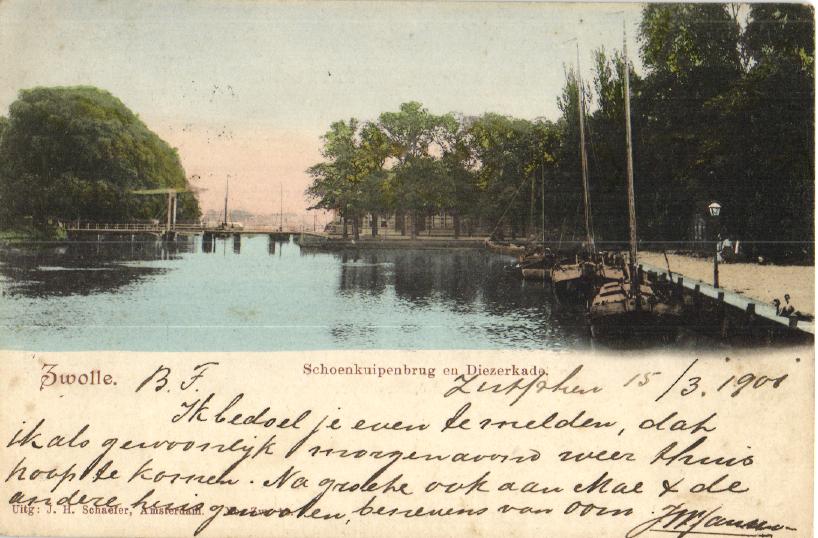 Zwolle. Schoenkuipenbrug en Diezerkade.
B. F. Zutphen 15/3. 1901
Ik bedoel je even te melden, dat
ik als gewoonlijk morgenavond weer thuis
hoop te komen. Na groete ook aan Mae & de
andere huisgenooten, besievens van Oom.
Uitg: J. H. Schaefer, Amsterdam.